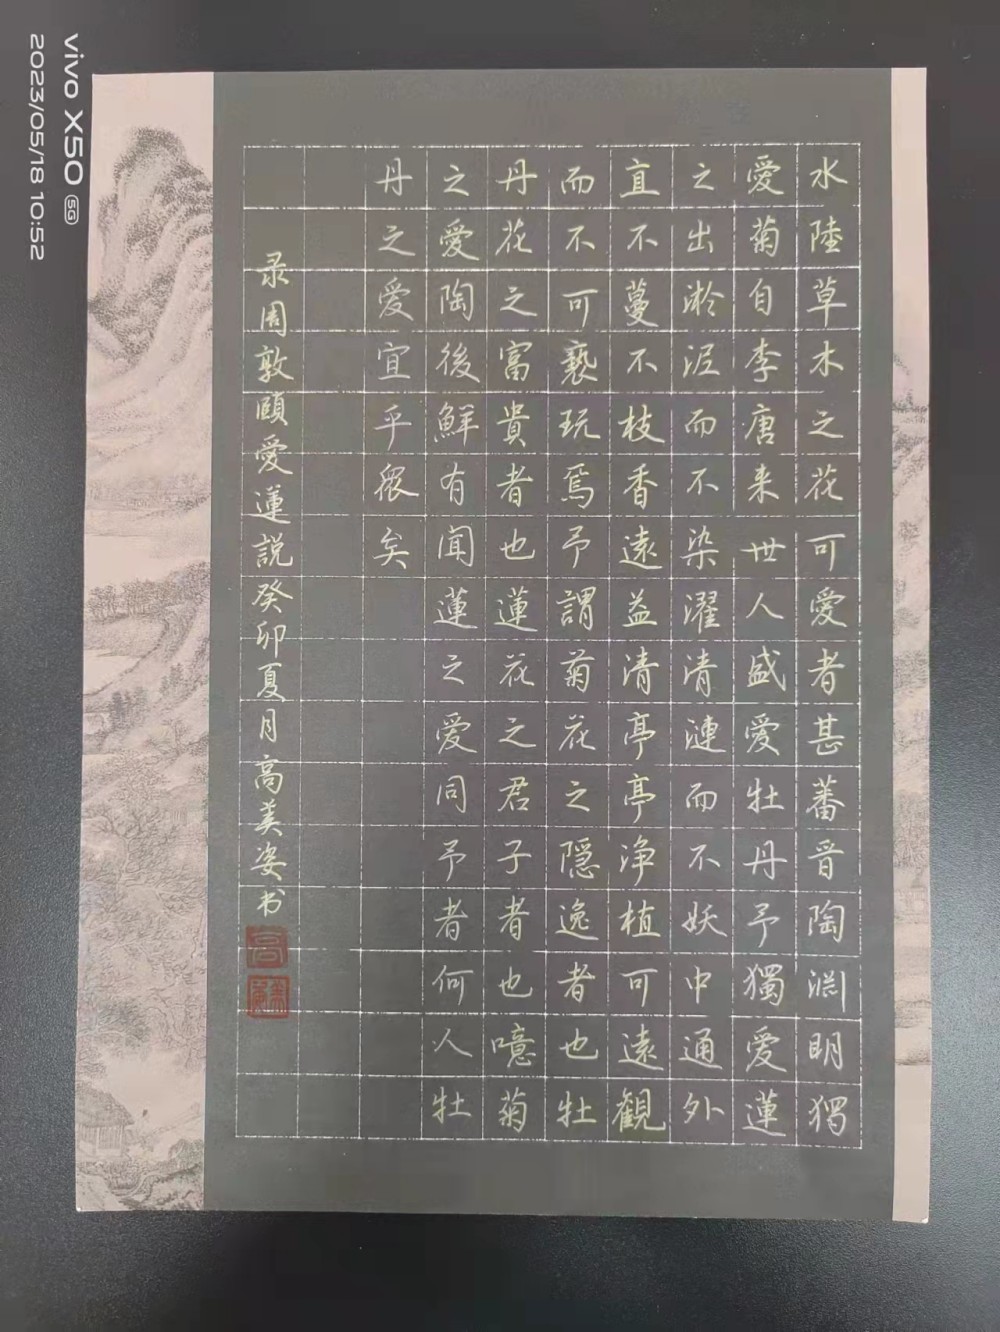 水陸草木之花可愛者甚蕃晋陶渊明獨
愛菊自李唐来世人盛愛牡丹予獨愛蓮
之出淤泥而不染濯清漣而不妖中通外
直不蔓不枝香遠益清亭亭净植可遠観
而不可褻玩焉予謂菊花之隠逸者也牡
丹花之富貴者也蓮花之君子者也噫菊
之愛陶後鮮有闻蓮之愛同予者何人牡
丹之愛宜乎眾矣
录周敦頤愛蓮説癸卯夏月高美姿书
vivo X50 5G
2023/05/18 10:52